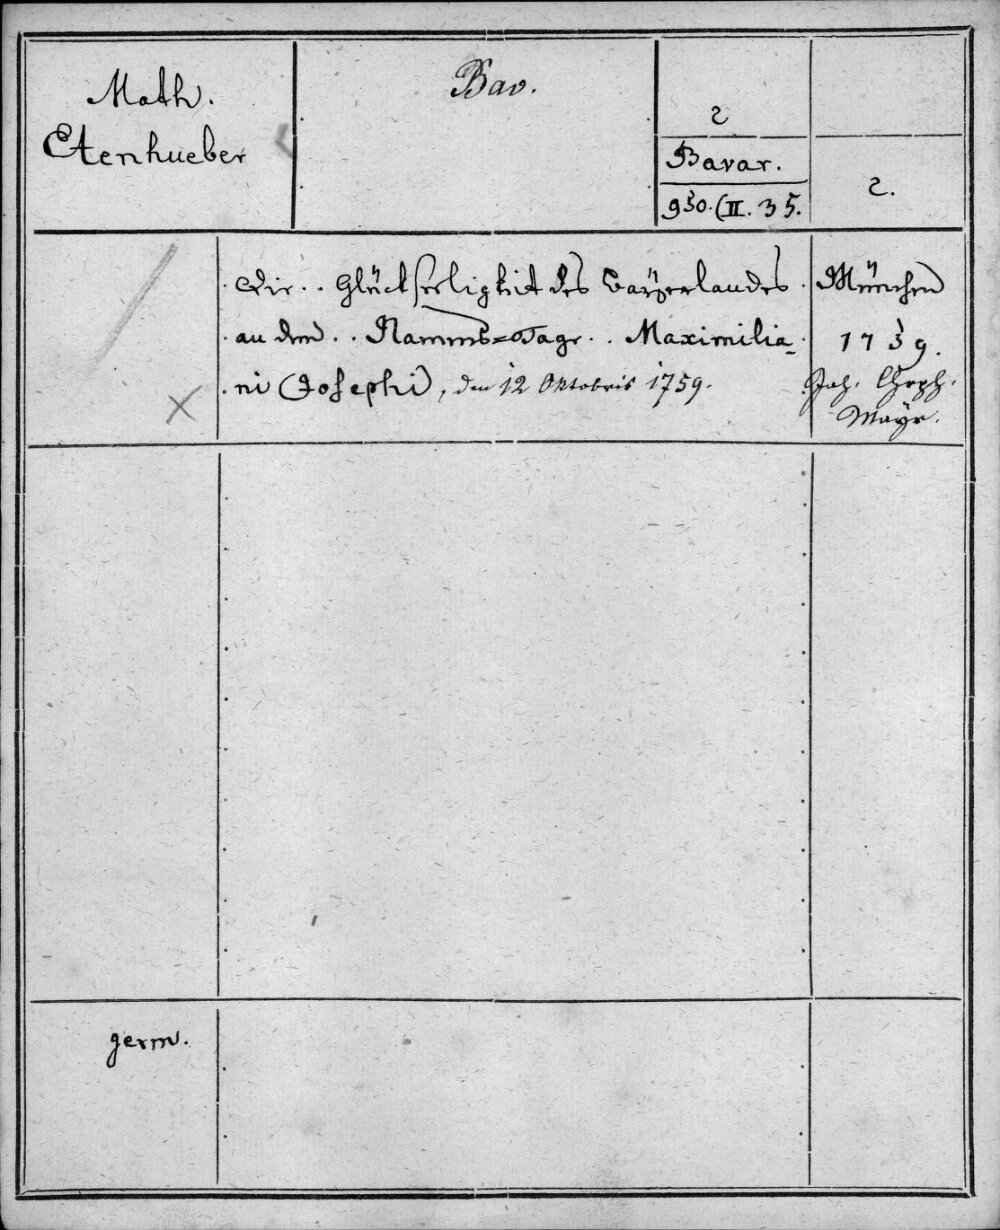 Math.
Etenhueber
Bav.
2
Bavar.
930. (II. 35.
2.
Die .. Glückseeligkeit des Bayerlandes
an dem .. Namens=Tage .. Maximilia-
ni (Josephi), den 12 Oktobris 1759.
München
1759.
Joh. Chrph.
Mayr.
germ.